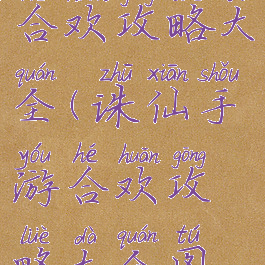 合欢攻略大
quán zhū xiān shǒu
全(诛仙手
yóu hé huān gōng
游合欢攻
lüè dà quán tú
略大全图